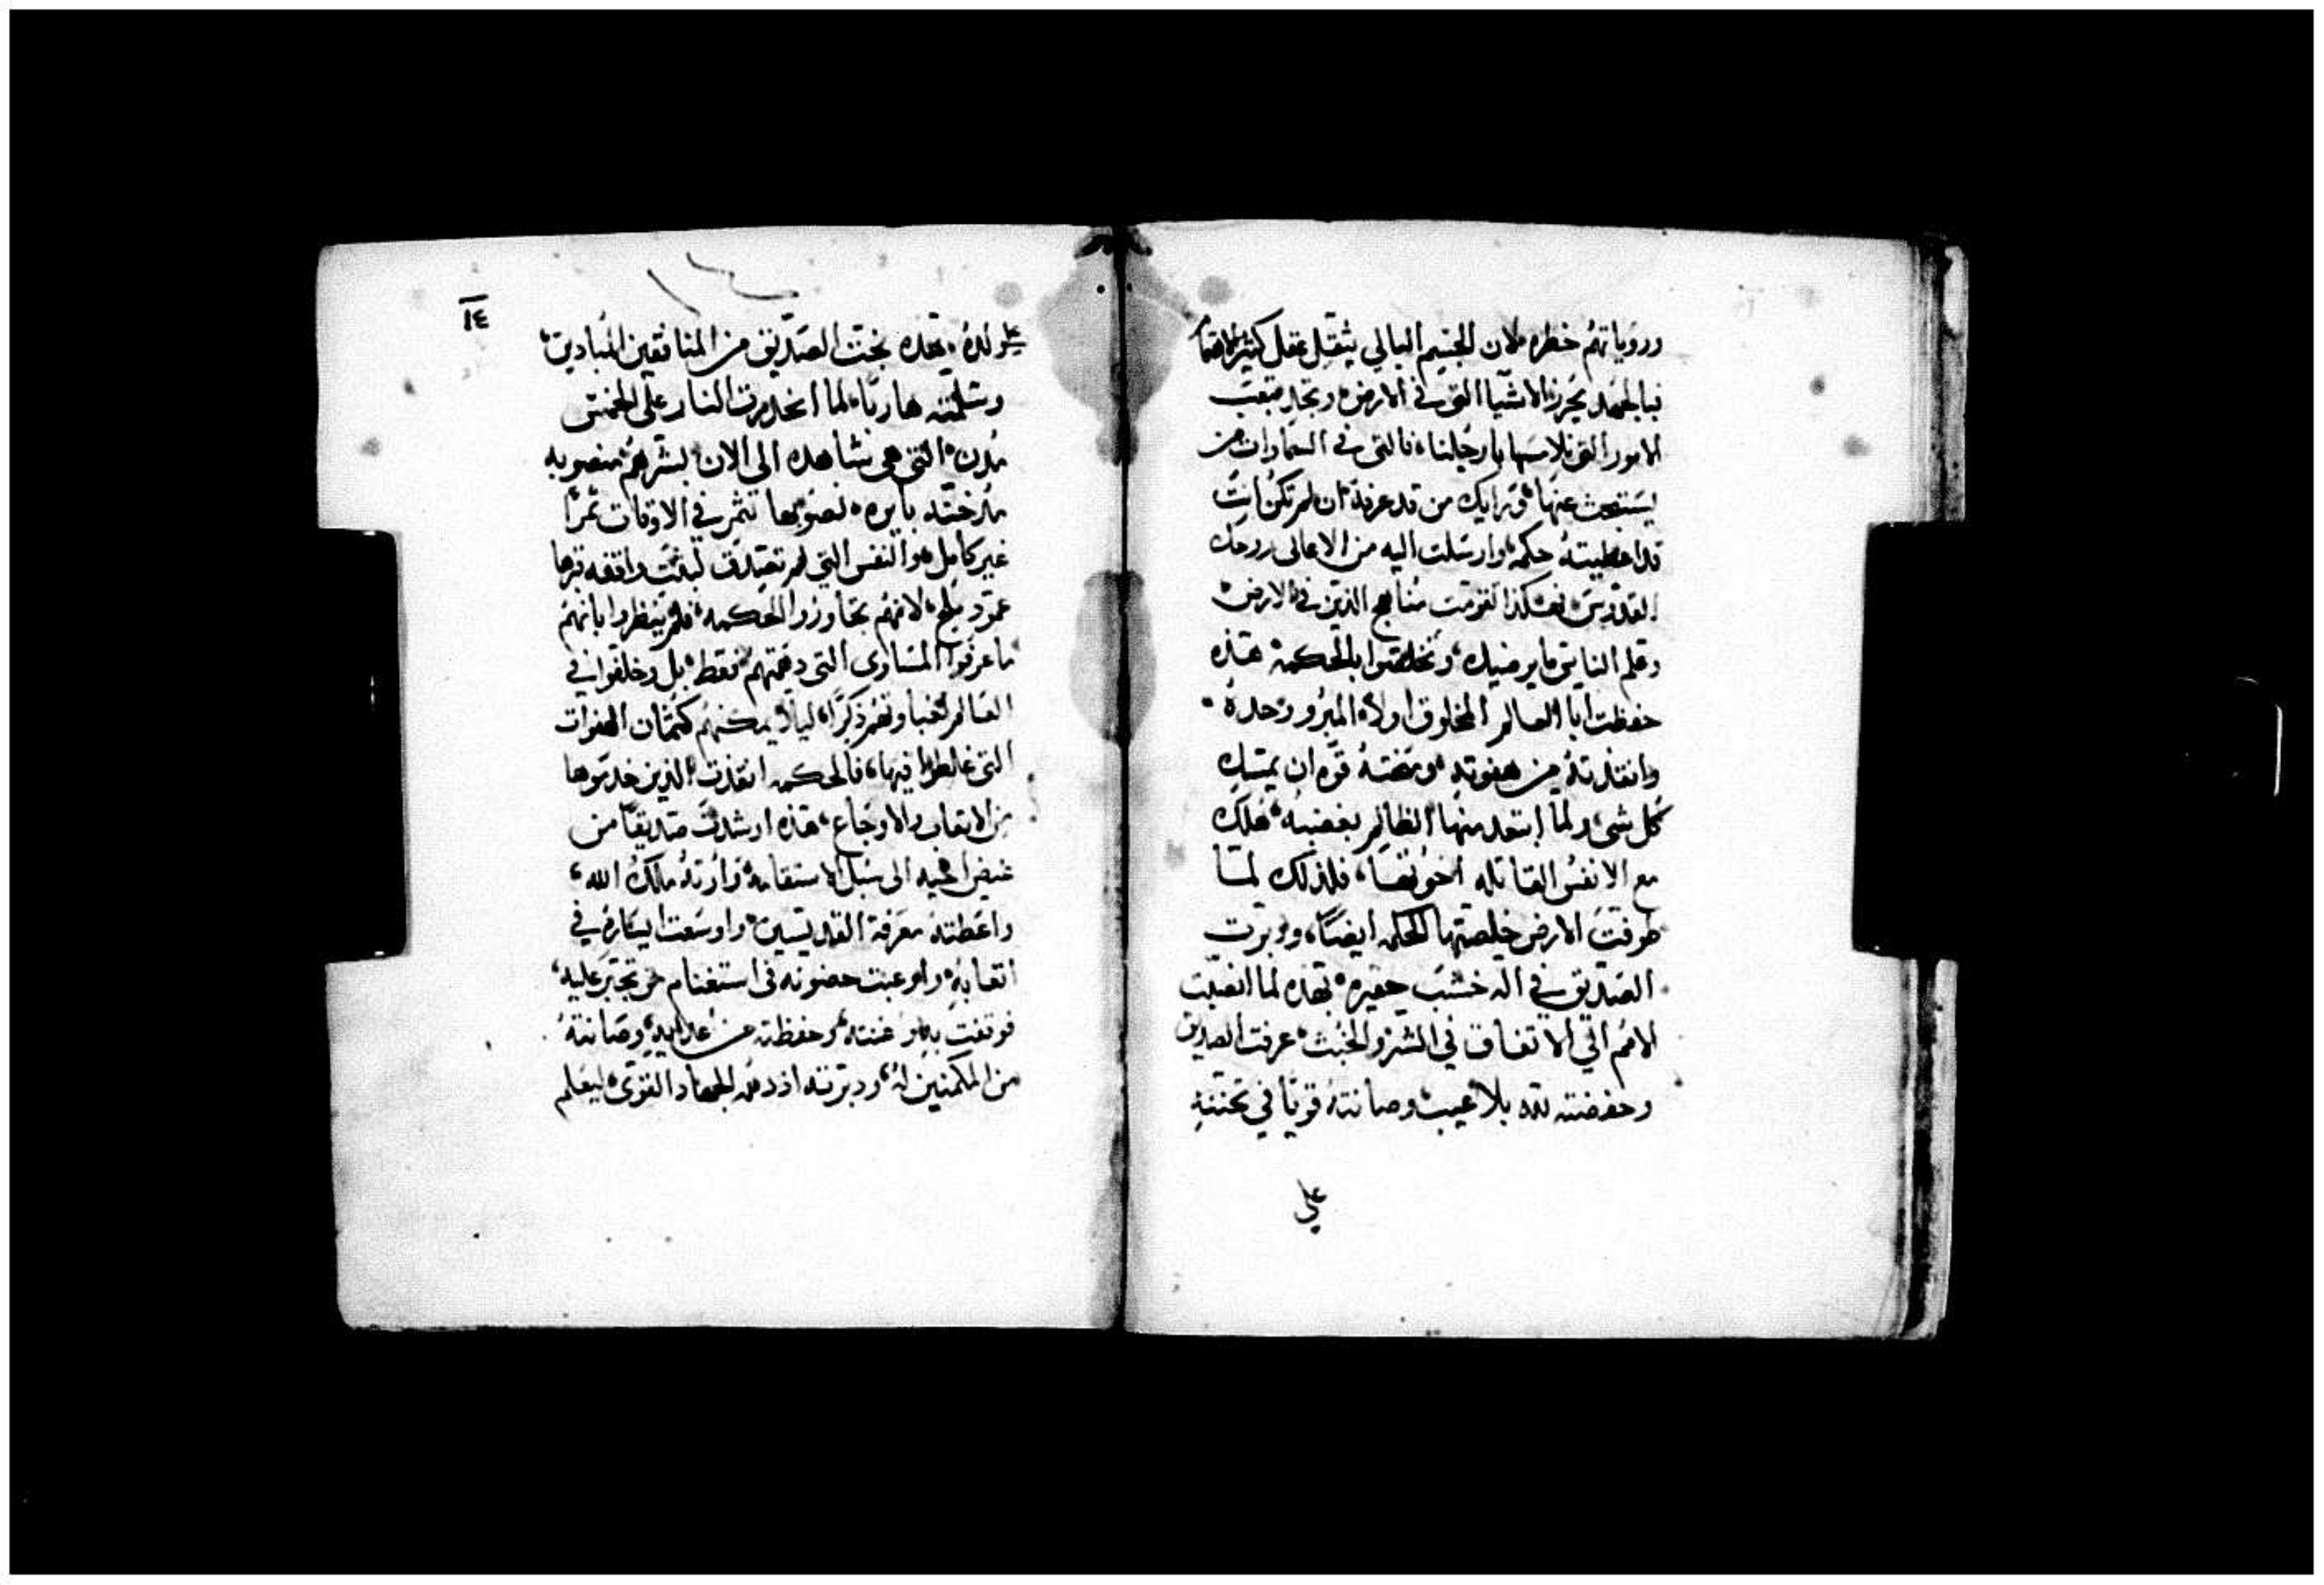 ورؤياتهم خطره لان الجسم البالي يثقل عقل كثير الاهتمام
فبالجهد نحرز الاشيا التي في الارض ونجد بتعب
الامور التي نلامسها بارجلنا فالتي في السماوات من
يستبحث عنها ورايك من قد عرفه ان لم تكن انت
قد اعطيته حكمه وارسلت اليه من الاعالي روحك
القدوس فهكذا تقومت مناهج الذين في الارض
وعلم الناس ما يرضيك وتخلصوا بالحكمه هذه
حفظت ابا العالم المخلوق اولا المبرو وحده
وانقذته من هفوته ومنحته قوه ان يمسك
كل شي ولما ابتعد منها الظالم بغضبه هلك
مع الانفس القاتله اخوتها فلذلك لما
طوفت الارض خلصتها الحكمه ايضا ودبرت
الصديق في اله خشب حقيره هذه لما انصبت
الامم الي الاتفاق في الشر والخبث عرفت الصديق
وحفضته لله بلا عيب وصانته قويا في تحننه
علي
١٤
علي ولده هذه نجت الصديق من المنافقين المبادين
وسلمته هاربا لما انحدرت النار علي الخمس
مدن التي هي شاهده الى الان بشرهم منصوبه
مدخنه بايره نصوبها تثمر في الاوقات ثمرا
غير كامل والنفس التي لم تصدق لبثت واقفه قربها
عمود ملح لانهم تجاوزوا الحكمه فلم ينظروا بانهم
ما عرفوا المساوى التي دهمتهم فقط بل وخلفوا في
العالم لغباوتهم ذكرا ليلا يمكنهم كتمان الهفوات
التي غالطوا فيها فالحكمه انقذت الذين خدموها
من الاتعاب والاوجاع هذه ارشدت صديقا من
غيض اخيه الى سبل الاستقامه وارته ملك الله
واعطته معرفة القديسين واوسعت ايساره في
اتعابه واوعبت حضونه في استغنام من تجبر عليه
فوقفت به واغنته وحفظته من اعدايه وصانته
من المكمنين له ودبرته اذ دهمه الجهاد القوى ليعلم